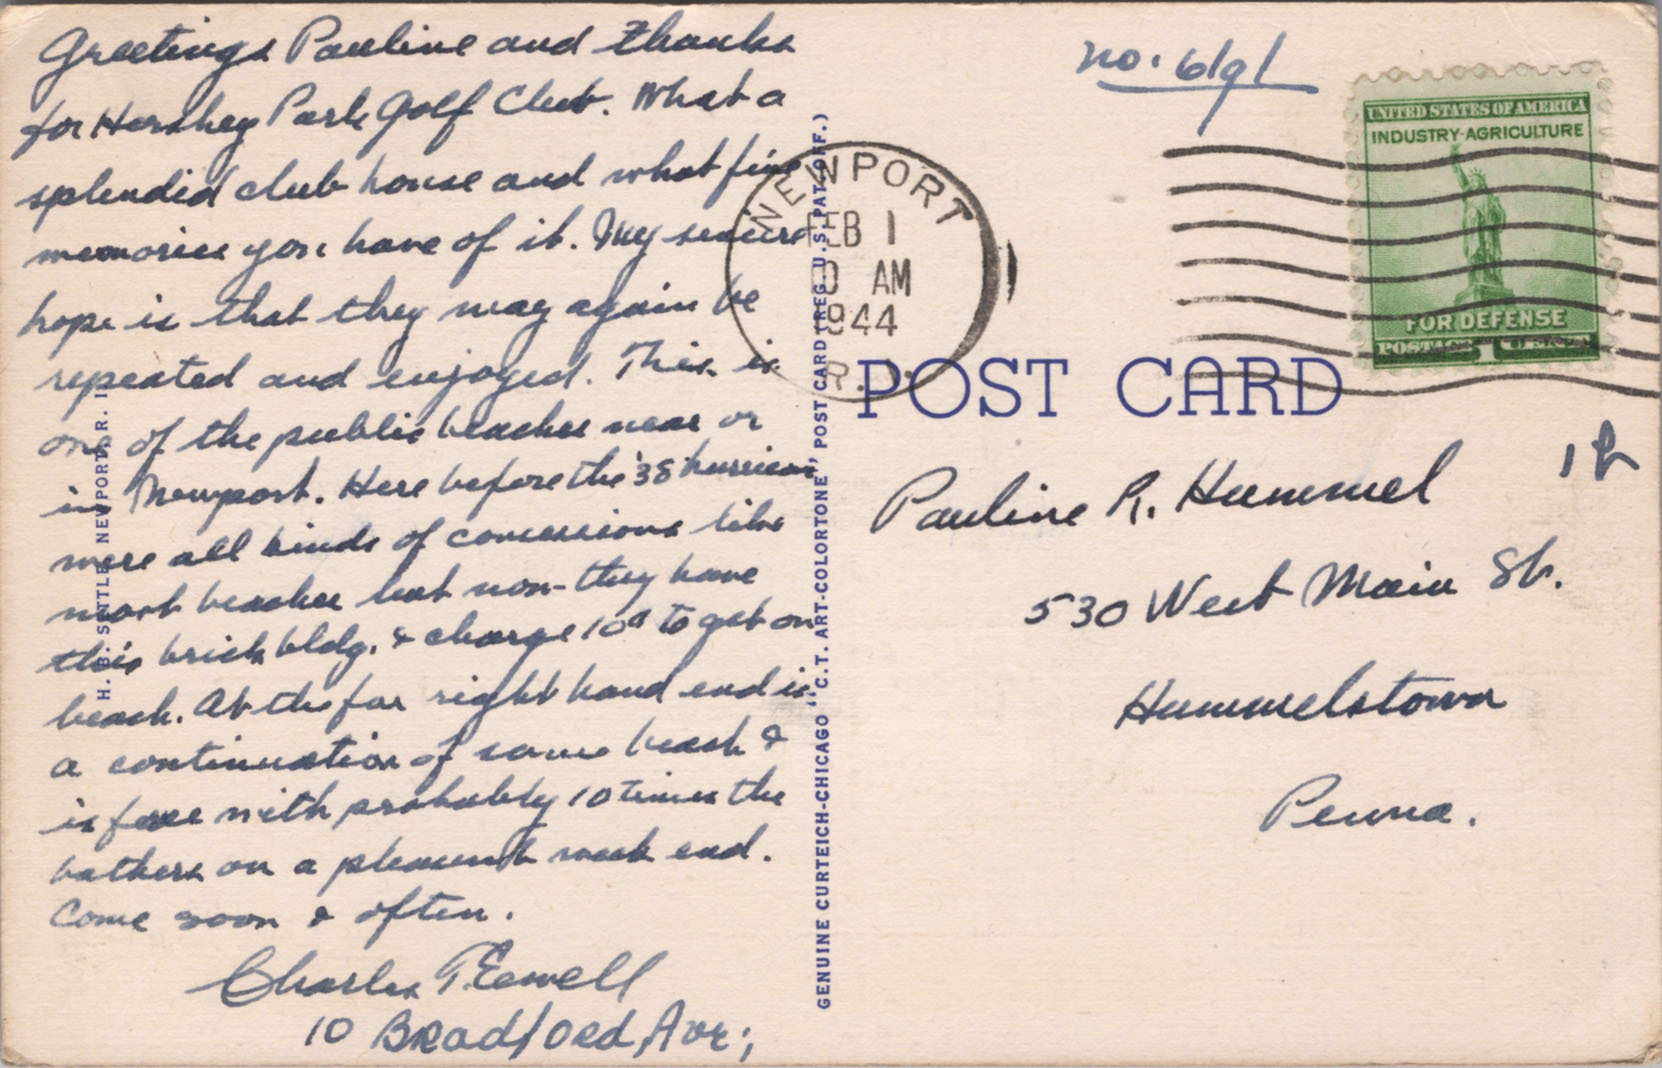 Greetings Pauline and thanks
for Hershey Park Golf Club. What a
splendid club house and what fine
memories you have of it. My sincere
hope is that they may again be
repeated and enjoyed. This is
one of the public beaches near or
in Newport. Here before the '38 hurricane
were all kinds of concessions like
most beaches but now - they have
this brick bldg. & charge 10¢ to get on
beach. At the far right hand end is
a continuation of same beach &
is free with probably 10 times the
bathers on a pleasant week end.
Come soon & often.
Charles T. Ewell
10 Bradford Ave;
H. B. SETTLE NEWPORT, R. I.
GENUINE CURTEICH-CHICAGO "C.T. ART-COLORTONE" POST CARD (REG. U.S. PAT. OFF.)
No. 6191
NEWPORT
FEB 1
AM
1944
R. I.
UNITED STATES OF AMERICA
INDUSTRY-AGRICULTURE
FOR DEFENSE
POSTAGE 1
POST CARD
Pauline R. Hummel
530 West Main St.
Hummelstown
Penna.